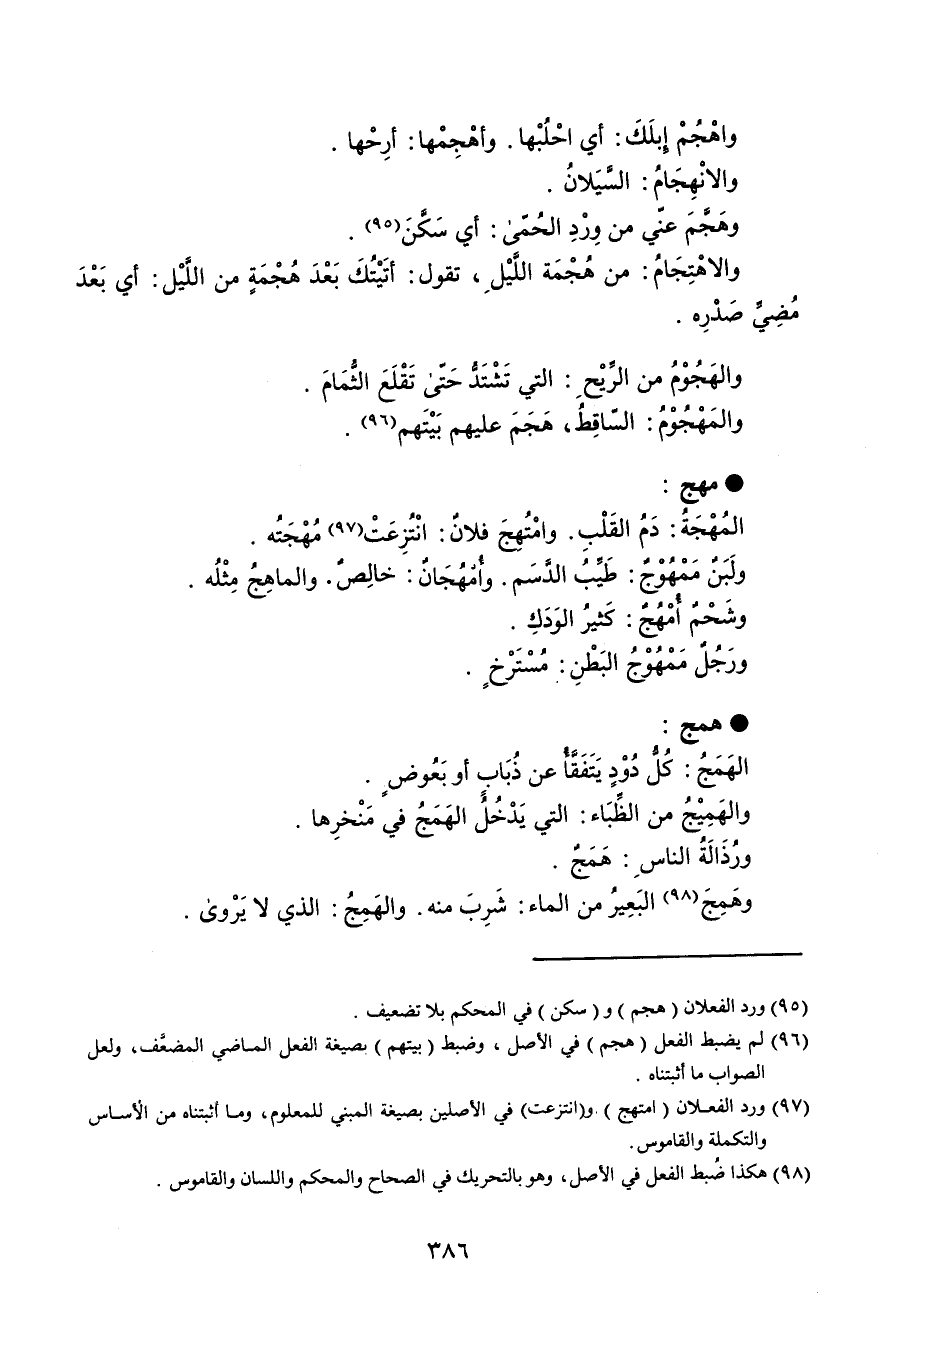 واهْجُمْ إِبلَكَ : أي احْلُبْها . وأهْجِمْها : أرِحْها .
والانْهِجَامُ : السَّيَلانُ .
وهَجَّمَ عنّي من وِرْدِ الحُمّىٰ : أي سَكَّنَ(٩٥) .
والاهْتِجَامُ : من هُجْمَة اللَّيْلِ ، تقول : أتَيْتُكَ بَعْدَ هُجْمَةٍ من اللَّيْل : أي بَعْدَ
مُضِيِّ صَدْرِه .
والهَجُوْمُ من الرِّيْحِ : التي تَشْتَدُّ حَتّىٰ تَقْلَعَ الثُّمَامَ .
والمَهْجُوْمُ : السّاقِطُ ، هَجَمَ عليهم بَيْتَهم(٩٦) .
● مهج :
المُهْجَةُ : دَمُ القَلْبِ . وامْتُهِجَ فلانٌ : انْتُزِعَتْ(٩٧) مُهْجَتُه .
ولَبَنٌ مَمْهُوْجٌ : طَيِّبُ الدَّسَم . وأُمْهُجَانٌ : خالِصٌ . والماهِجُ مِثْلُه .
وشَحْمٌ أُمْهُجٌ : كَثيرُ الوَدَكِ .
ورَجُلٌ مَمْهُوْجُ البَطْنِ : مُسْتَرْخٍ .
● همج :
الهَمَجُ : كُلُّ دُوْدٍ يَتَفَقَّأُ عن ذُبَابٍ أو بَعُوضٍ .
والهَمِيْجُ من الظِّبَاء : التي يَدْخُلُ الهَمَجُ في مَنْخرِها .
ورُذَالَةُ الناسِ : هَمَجٌ .
وهَمِجَ(٩٨) البَعِيرُ من الماء : شَرِبَ منه . والهَمِجُ : الذي لا يَرْوىٰ .
(٩٥) ورد الفعلان ( هجم ) و ( سكن ) في المحكم بلا تضعيف .
(٩٦) لم يضبط الفعل ( هجم ) في الأصل ، وضبط ( بيتهم ) بصيغة الفعل الماضي المضعَّف ، ولعل
الصواب ما أثبتناه .
(٩٧) ورد الفعلان ( امتهج ) و(انتزعت) في الأصلين بصيغة المبني للمعلوم ، وما أثبتناه من الأساس
والتكملة والقاموس .
(٩٨) هكذا ضُبط الفعل في الأصل ، وهو بالتحريك في الصحاح والمحكم واللسان والقاموس .
٣٨٦